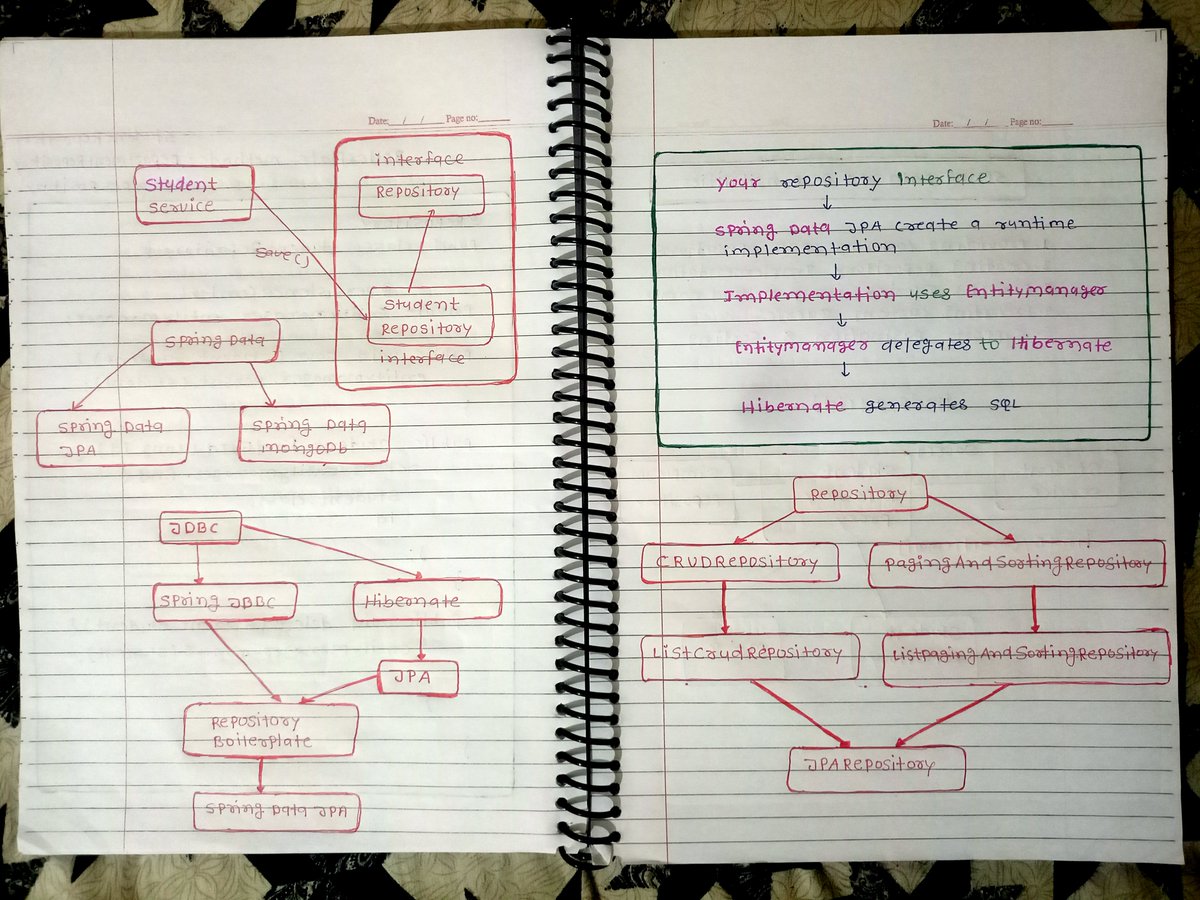 Date: / / Page no:
interface
Repository
Student
Service
Save()
Student
Repository
interface
Spring Data
Spring Data
JPA
Spring Data
MongoDb
JDBC
Spring JBBC
Hibernate
JPA
Repository
Boilerplate
Spring Data JPA
Date: / / Page no:
Your repository Interface
↓
Spring Data JPA create a runtime
implementation
↓
Implementation uses EntityManager
↓
Entitymanager delegates to Hibernate
↓
Hibernate generates SQL
Repository
CRUDRepository
PagingAndSortingRepository
ListCrudRepository
ListpagingAndSortingRepository
JPARepository